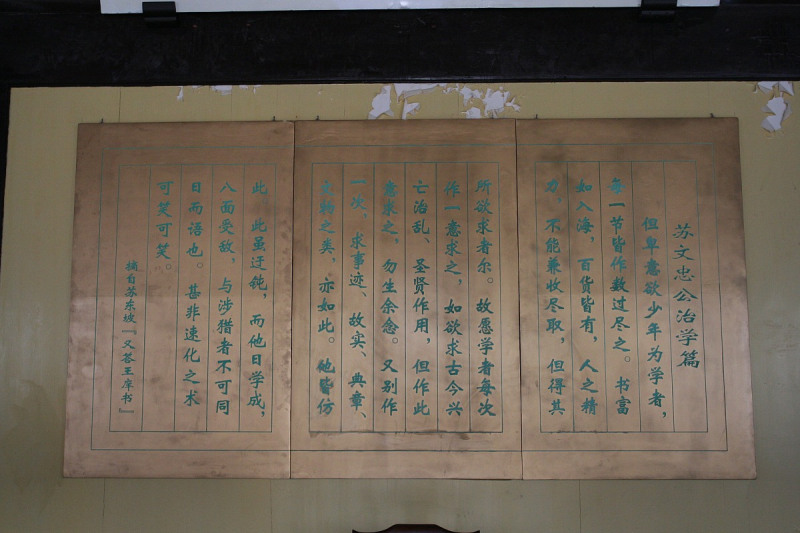 苏文忠公治学篇
但卑意欲少年为学者，
每一节皆作数过尽之。书富
如入海，百货皆有，人之精
力，不能兼收尽取，但得其
所欲求者尔。故愿学者每次
作一意求之，如欲求古今兴
亡治乱、圣贤作用，但作此
意求之，勿生余念。又别作
一次，求事迹、故实、典章、
文物之类，亦如此。他皆仿
此，此虽迂钝，而他日学成，
八面受敌，与涉猎者不可同
日而语也。甚非速化之术
可笑可笑。
摘自苏东坡『又答王庠书』